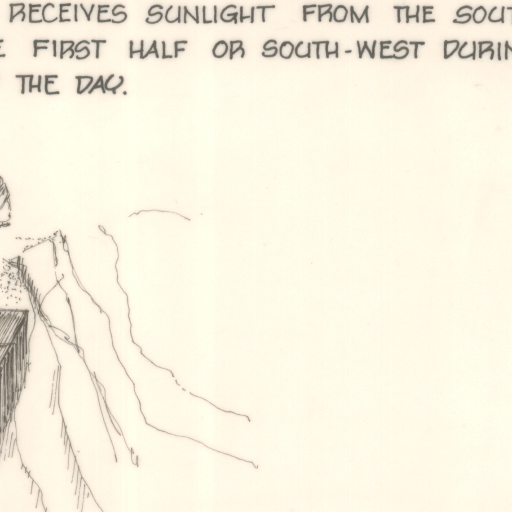 RECEIVES SUNLIGHT FROM THE SOUT
FIRST HALF OR SOUTH-WEST DURIN
THE DAY.